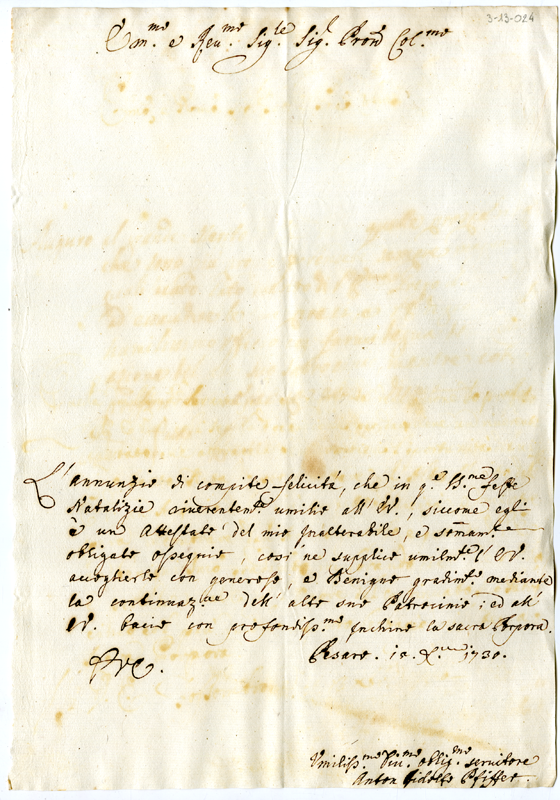 3-13-024
Em.mo e Rev.mo Sig.re Sig.r Pron Col.mo
L'annunzio di compite felicità, che in q.e S.me feste
Natalizie riverentem.te umilio all' EV., siccome egli
è un Attestato del mio Inalterabile, e somam.te
obligato ossequio, così ne supplico umilm.te l'EV.
accoglierlo con generoso, e Benigno gradim.to mediante
la continuaz.ne dell' alto suo Patrocinio; ed all'
EV. bacio con profondiss.mo Inchino la sacra Porpora.
Pesaro. X.bre 1730.
Umiliss.mo Div.mo oblig.mo servitore
Anton Pfiffer